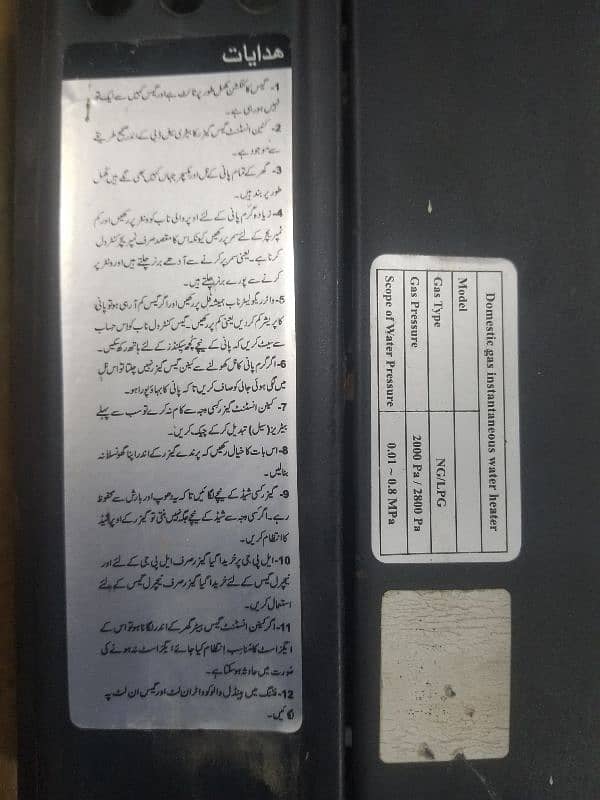 هدایات
1- گیس کا کنکشن مکمل طور پر ٹائٹ ہے اور گیس کہیں سے لیک تو
نہیں ہو رہی ہے۔
2- کینن انسٹنٹ گیس گیزر کا بیٹری سیل ڈبی کے اندر صحیح طریقے
سے موجود ہے۔
3- گھر کے تمام پانی کے نل اور مکسچر جہاں کہیں بھی لگے ہیں مکمل
طور پر بند ہیں۔
4- زیادہ گرم پانی کے لئے اوپر والی ناب کو ونٹر پر رکھیں اور کم
ٹمپریچر کے لئے سمر پر رکھیں کیونکہ اس کا مقصد صرف ٹمپریچر کنٹرول
کرنا ہے۔ یعنی سمر پر کرنے سے آدھے برنر چلتے ہیں اور ونٹر پر
کرنے سے پورے برنر چلتے ہیں۔
5- واٹر ریگولیٹر ناب ہمیشہ فل پر رکھیں اور اگر گیس کم آ رہی ہو تو پانی
کا پریشر کم کر دیں یعنی کم پر رکھیں۔ گیس کنٹرول ناب کو اس حساب
سے سیٹ کریں کہ پانی کے نیچے کچھ سیکنڈز کے لئے ہاتھ رکھ سکیں۔
6- اگر گرم پانی کا نل کھولنے سے کینن گیس گیزر نہیں چلتا تو اس نل
میں لگی ہوئی جالی کو صاف کریں تا کہ پانی کا بہاؤ پورا ہو۔
7- کینن انسٹنٹ گیزر کسی وجہ سے کام نہ کرے تو سب سے پہلے
بیٹریز (سیل) تبدیل کر کے چیک کریں۔
8- اس بات کا خیال رکھیں کہ پرندے گیزر کے اندر اپنا گھونسلا نہ
بنالیں۔
9- گیزر کسی شیڈ کے نیچے لگائیں تا کہ یہ دھوپ اور بارش سے محفوظ
رہے۔ اگر کسی وجہ سے شیڈ کے نیچے جگہ نہیں بنتی تو گیزر کے اوپر شیڈ
کا انتظام کریں۔
10- ایل پی جی پر خریدا گیا گیزر صرف ایل پی جی کے لئے اور
نیچرل گیس کے لئے خریدا گیا گیزر صرف نیچرل گیس کے لئے
استعمال کریں۔
11- اگر کینن انسٹنٹ گیس ہیٹر گھر کے اندر لگانا ہو تو اس کے
ایگزاسٹ کا مناسب انتظام کیا جائے ایگزاسٹ نہ ہونے کی
صورت میں حادثہ ہو سکتا ہے۔
12- فٹنگ میں ہینڈل والو کو واٹر ان لٹ اور گیس ان لٹ پہ
لگائیں۔
Domestic gas instantaneous water heater
Model
Gas Type NG/LPG
Gas Pressure 2000 Pa / 2800 Pa
Scope of Water Pressure 0.01 ~ 0.8 MPa